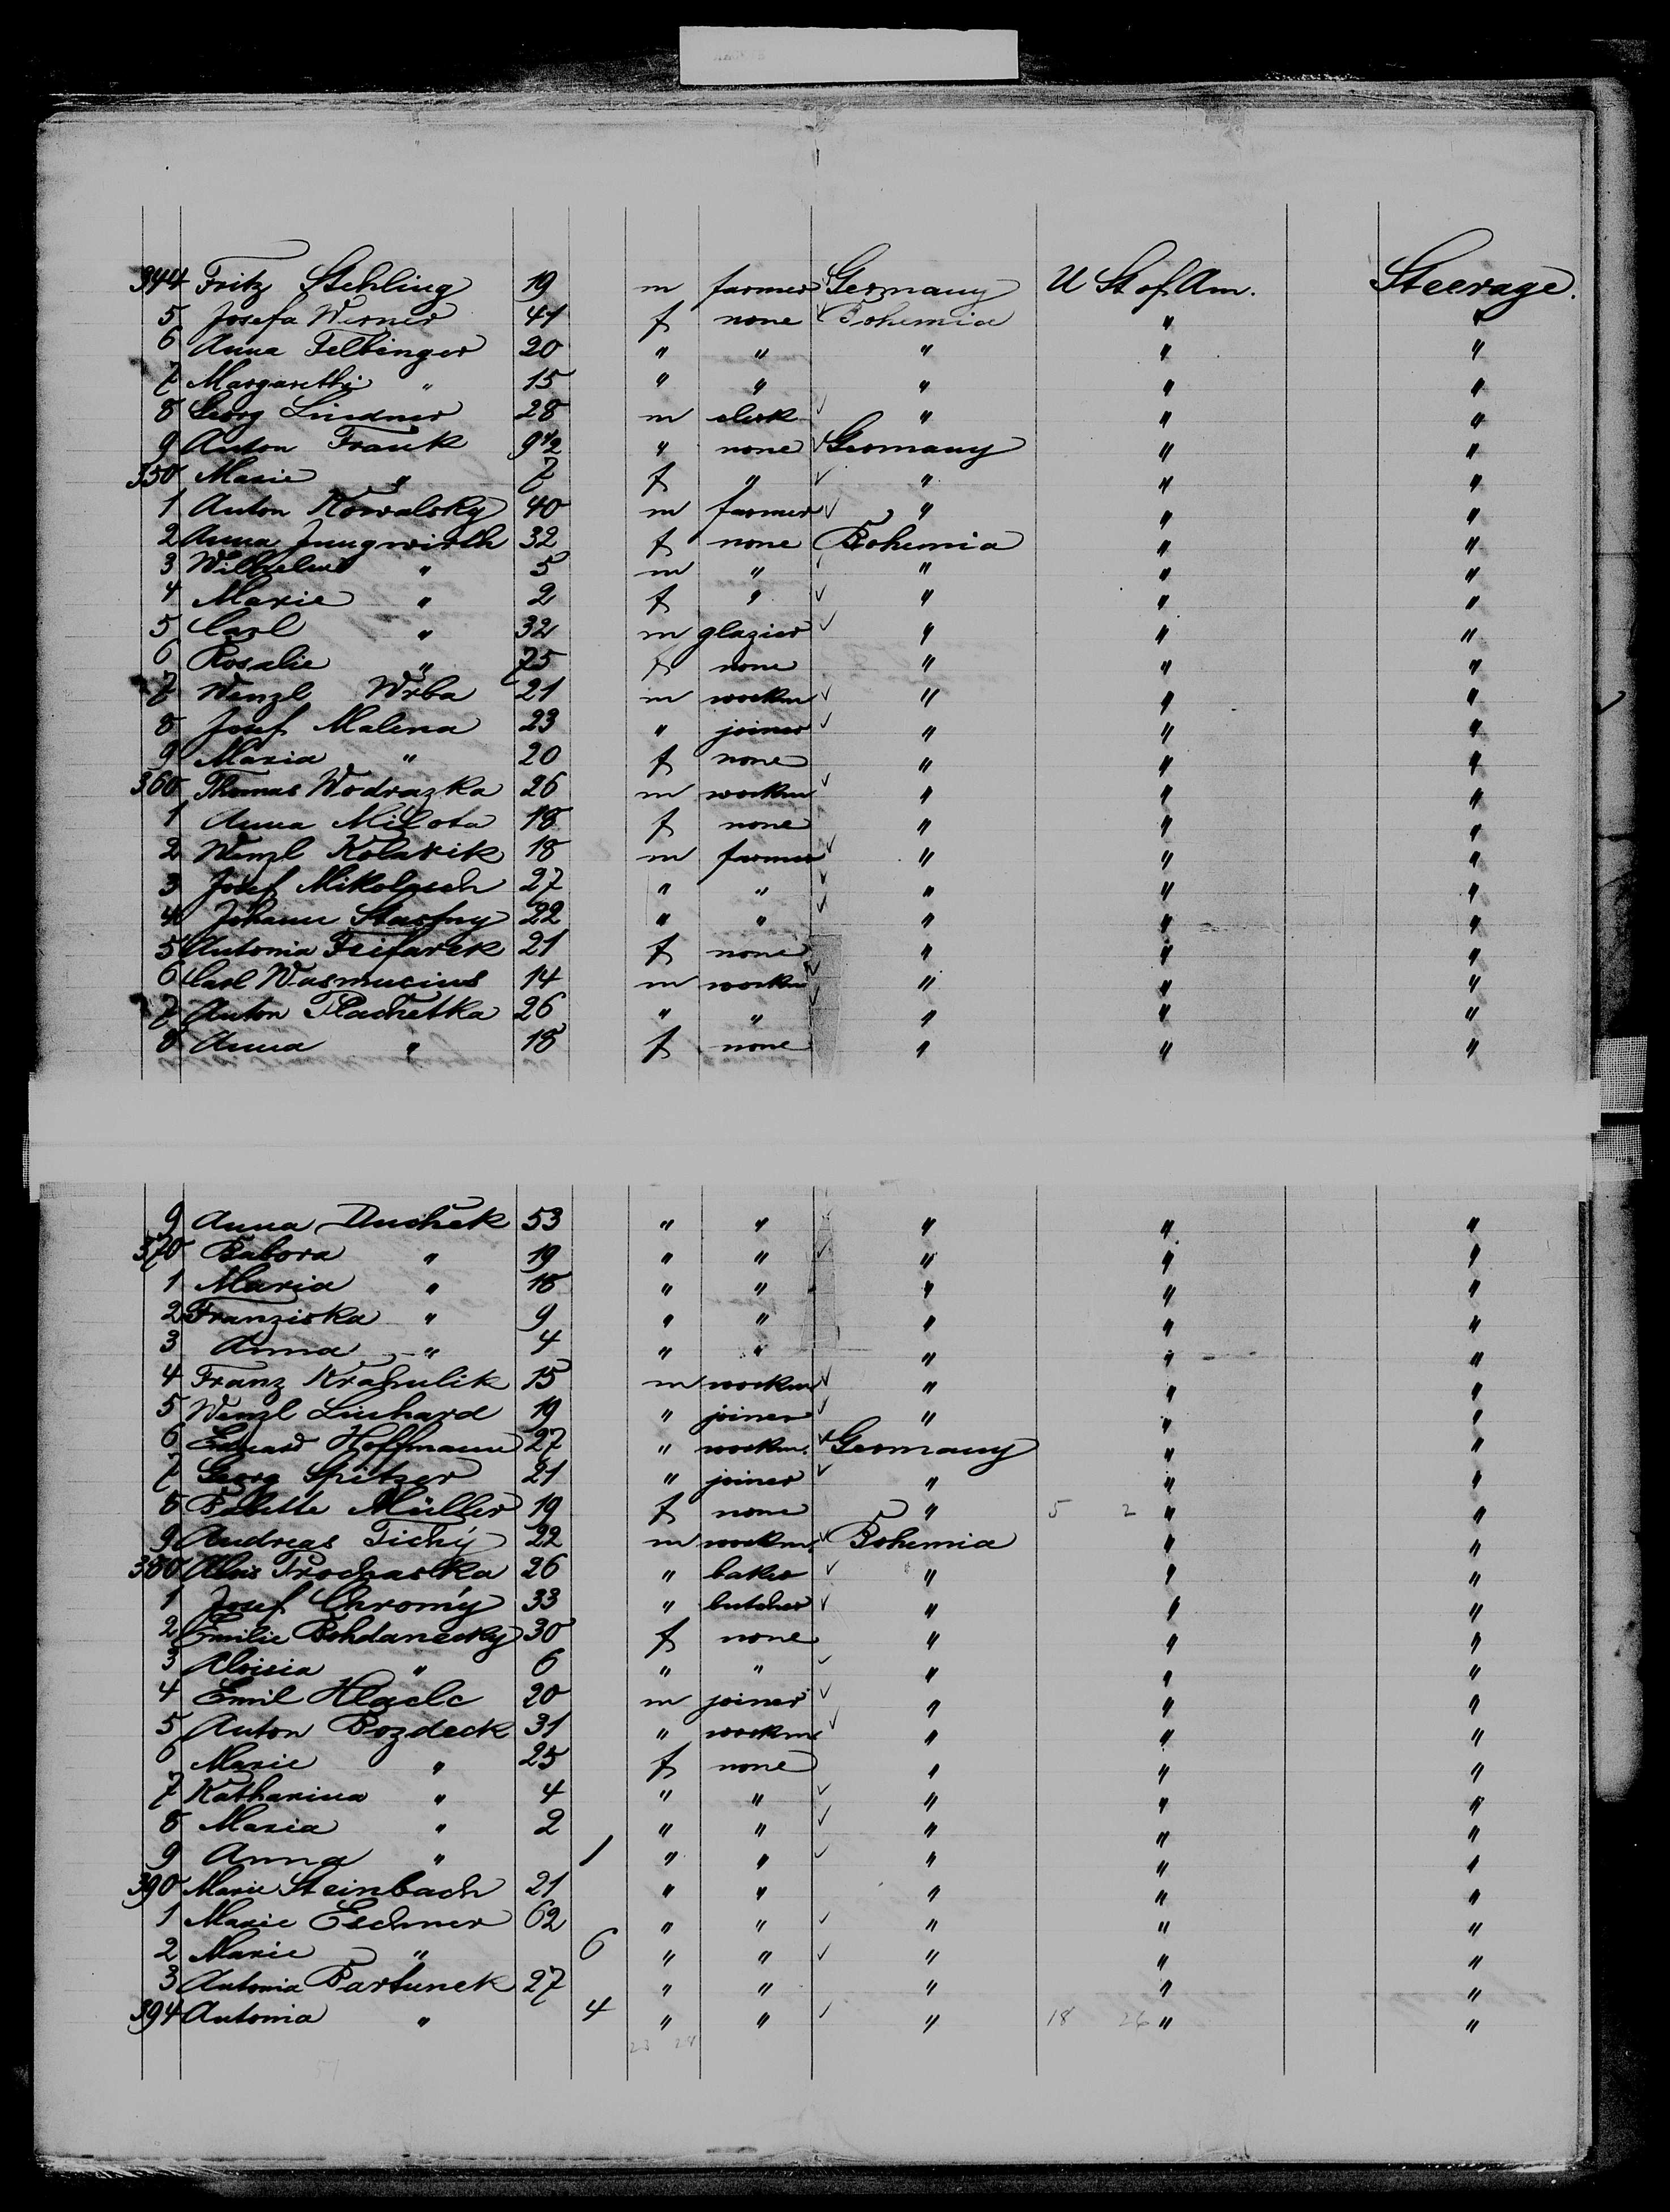 344 Fritz Stehling 19 m farmer Germany U St of Am. Steerage.
5 Josefa Werner 41 f none Bohemia " "
6 Anna Felbinger 20 " " " " "
7 Margarethe " 15 " " " " "
8 Georg Lindner 28 m clerk " " "
9 Anton Frank 9 1/2 " none Germany " "
350 Marie " 7 f " " " "
1 Anton Kowalsky 40 m farmer " " "
2 Anna Jungwirth 32 f none Bohemia " "
3 Wilhelm " 5 m " " " "
4 Marie " 2 f " " " "
5 Carl " 32 m glazier " " "
6 Rosalie " 75 f none " " "
7 Wenzl Wrba 21 m workm " " "
8 Josef Malena 23 " joiner " " "
9 Maria " 20 f none " " "
360 Thomas Wodrazka 26 m workm " " "
1 Anna Milota 18 f none " " "
2 Wenzl Kolarik 18 m farmer " " "
3 Josef Mikolasch 27 " " " " "
4 Johann Stastny 22 " " " " "
5 Antonia Feifarek 21 f none " " "
6 Carl Wasmucius 14 m workm " " "
7 Anton Plachetka 26 " " " " "
8 Anna " 18 f none " " "
9 Anna Duchek 53 " " " " "
370 Babora " 19 " " " " "
1 Maria " 18 " " " " "
2 Franziska " 9 " " " " "
3 Anna " 4 " " " " "
4 Franz Krahulik 15 m workm " " "
5 Wenzl Linhard 19 " joiner " " "
6 Eduard Hoffmann 27 " workm. Germany " "
7 Georg Spitzer 21 " joiner " " "
8 Babette Müller 19 f none " 5 2 " "
9 Andreas Tichý 22 m workm. Bohemia " "
380 Alois Prochaska 26 " baker " " "
1 Josef Chromý 33 " butcher " " "
2 Emilie Bohdanecky 30 f none " " "
3 Aloisia " 6 " " " " "
4 Emil Hlaele 20 m joiner " " "
5 Anton Bozdeck 31 " workm " " "
6 Marie " 25 f none " " "
7 Katharina " 4 " " " " "
8 Maria " 2 " " " " "
9 Anna " 1 " " " " "
390 Marie Steinbach 21 " " " " "
1 Marie Eschner 62 " " " " "
2 Marie " 6 " " " " "
3 Antonia Bartunek 27 " " " " "
394 Antonia " 4 " " " 18 26 " "
23 28
57